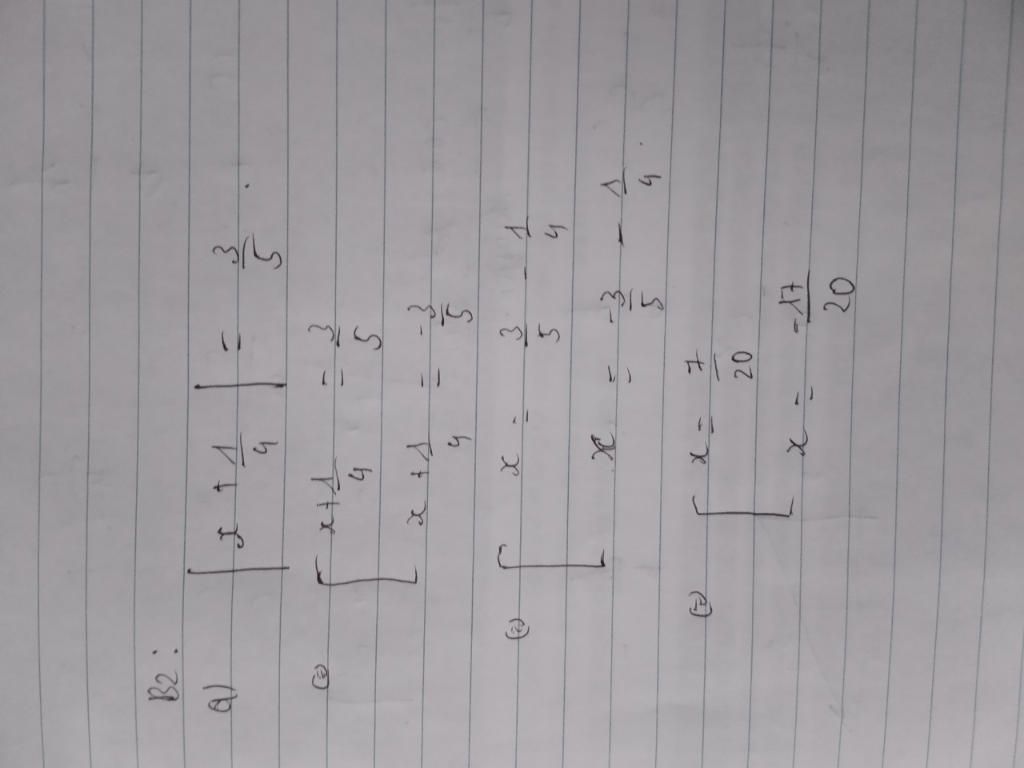 B2:
a) | x + 1/4 | = 3/5 .
(=) [ x + 1/4 = 3/5
x + 1/4 = -3/5
(=) [ x = 3/5 - 1/4
x = -3/5 - 1/4 .
(=) [ x = 7/20
x = -17/20